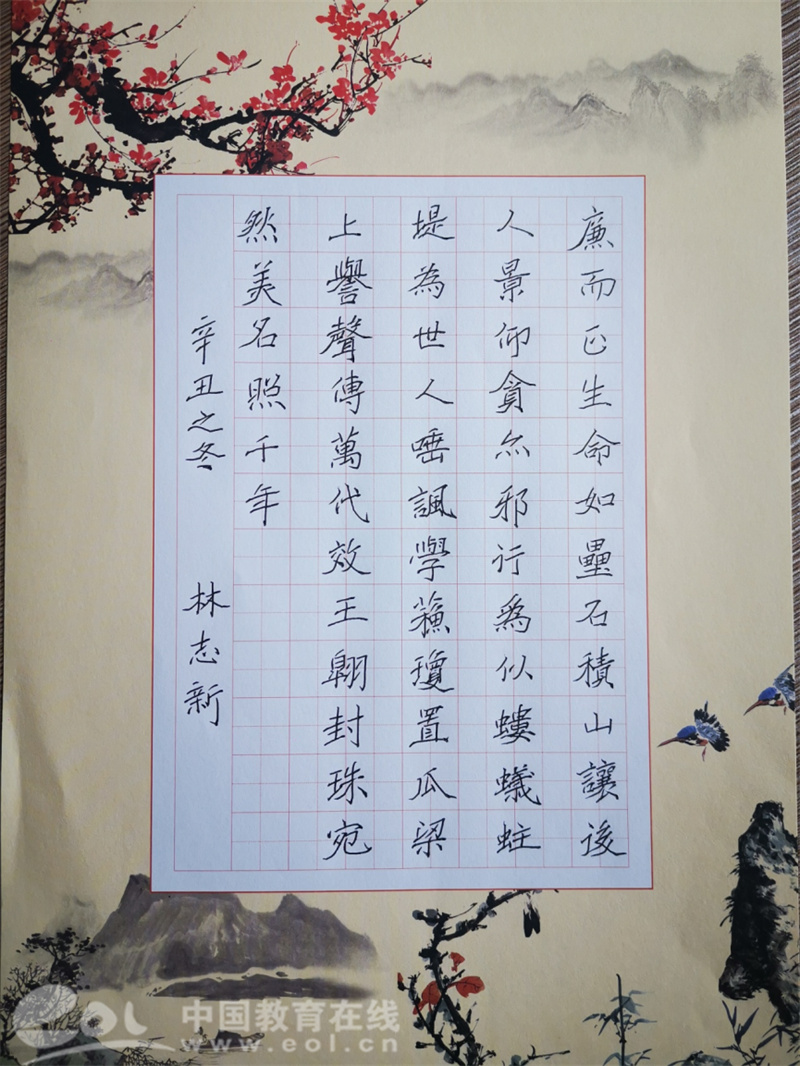 廉而正生命如壘石積山讓後
人景仰貪而邪行為似螻蟻蛀
堤為世人唾諷學蘓瓊置瓜梁
上譽聲傳萬代效王翱封珠宛
然美名照千年
辛丑之冬 林志新
eol 中国教育在线
www.eol.cn